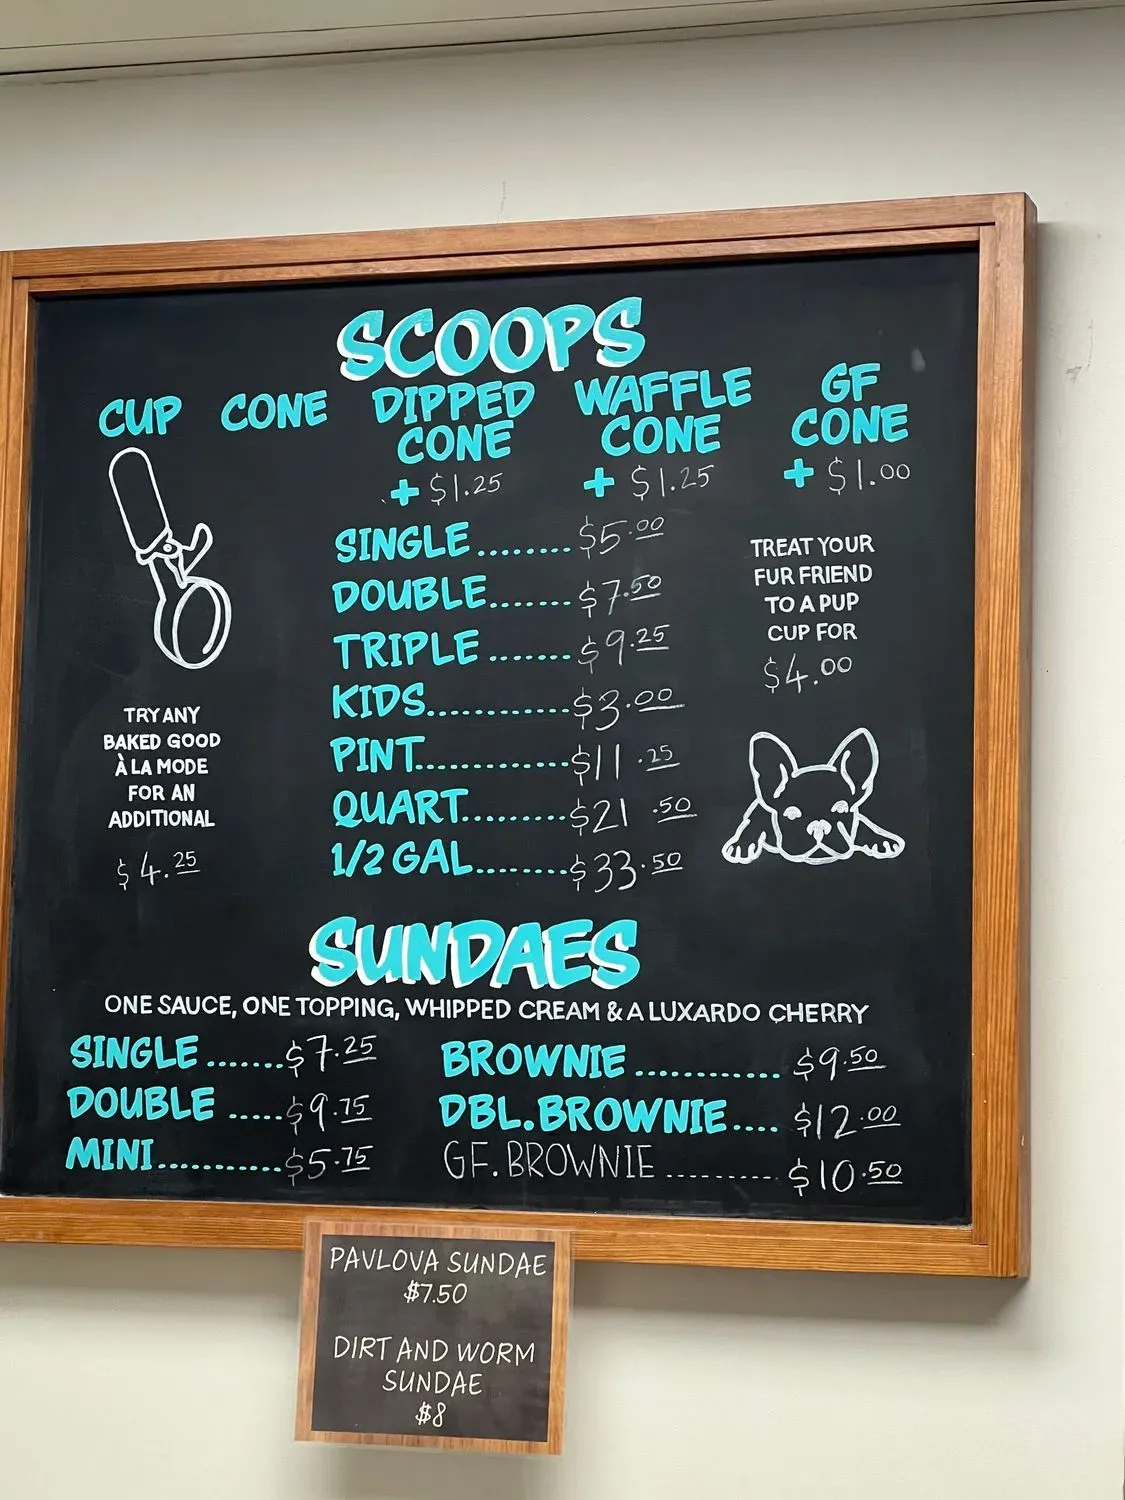 SCOOPS
CUP CONE DIPPED CONE + $1.25 WAFFLE CONE + $1.25 GF CONE + $1.00
SINGLE........$5.00
DOUBLE.......$7.50
TRIPLE.......$9.25
KIDS............$3.00
PINT.............$11.25
QUART.........$21.50
1/2 GAL........$33.50
TRY ANY
BAKED GOOD
À LA MODE
FOR AN
ADDITIONAL
$4.25
TREAT YOUR
FUR FRIEND
TO A PUP
CUP FOR
$4.00
SUNDAES
ONE SAUCE, ONE TOPPING, WHIPPED CREAM & A LUXARDO CHERRY
SINGLE.......$7.25
DOUBLE.....$9.75
MINI...........$5.75
BROWNIE............$9.50
DBL.BROWNIE....$12.00
GF.BROWNIE..........$10.50
PAVLOVA SUNDAE
$7.50
DIRT AND WORM
SUNDAE
$8